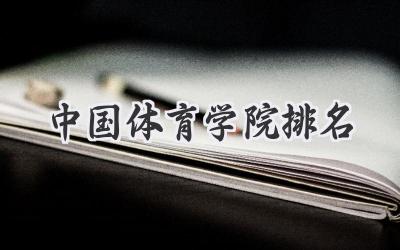 中国体育学院排名